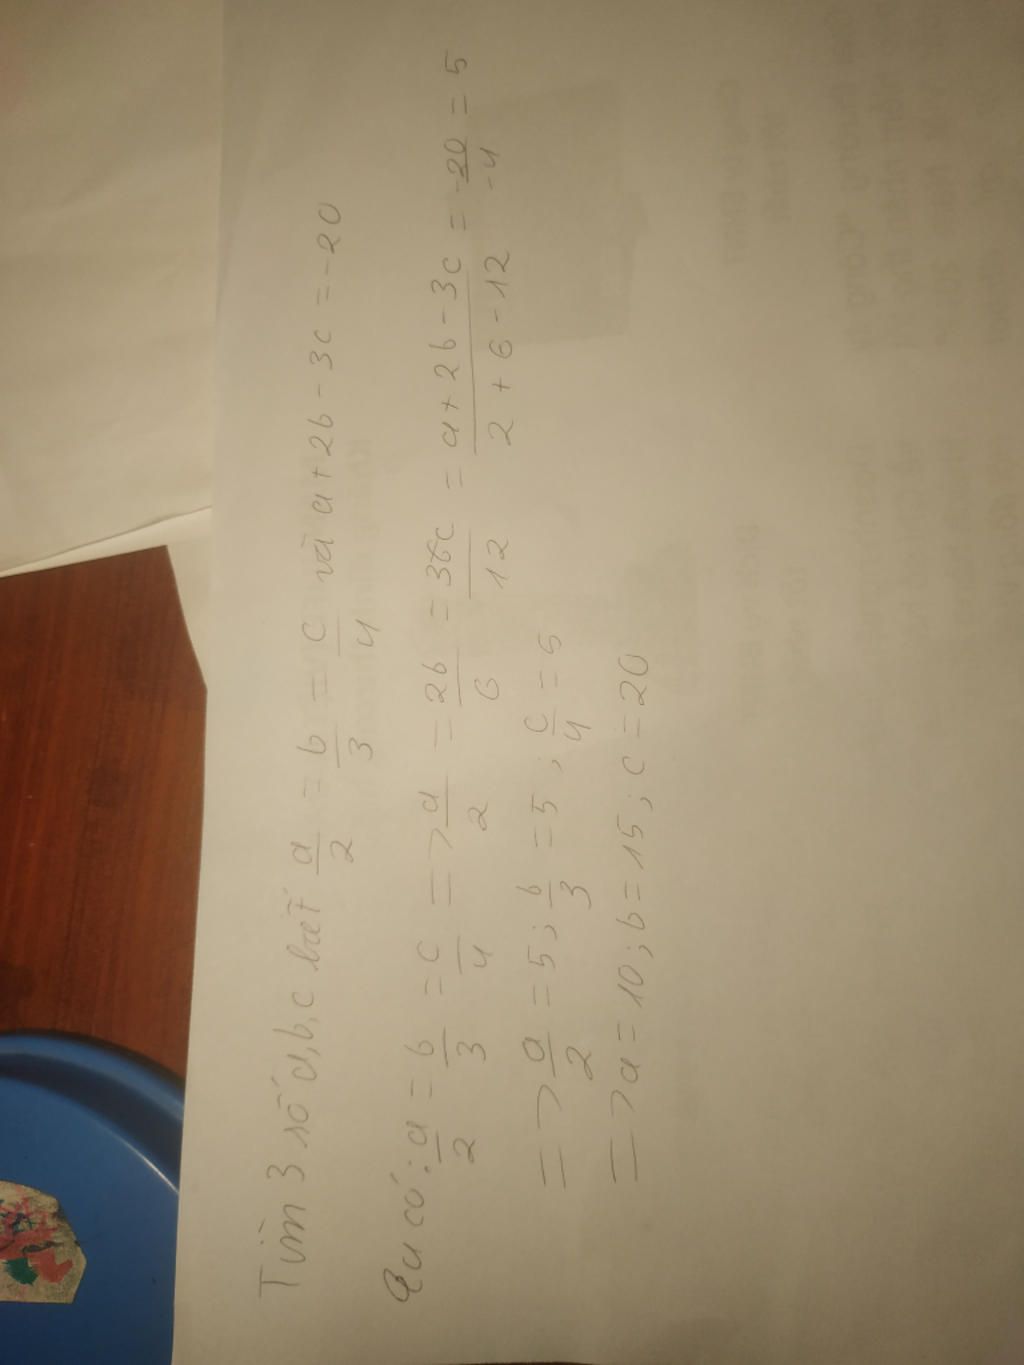 Tìm 3 số a,b,c biết a/2 = b/3 = c/4 và a+2b-3c=-20
Ta có: a/2 = b/3 = c/4 => a/2 = 2b/6 = 3c/12 = a+2b-3c/2+6-12 = -20/-4 = 5
=> a/2 = 5; b/3 = 5; c/4 = 5
=> a=10; b=15; c=20